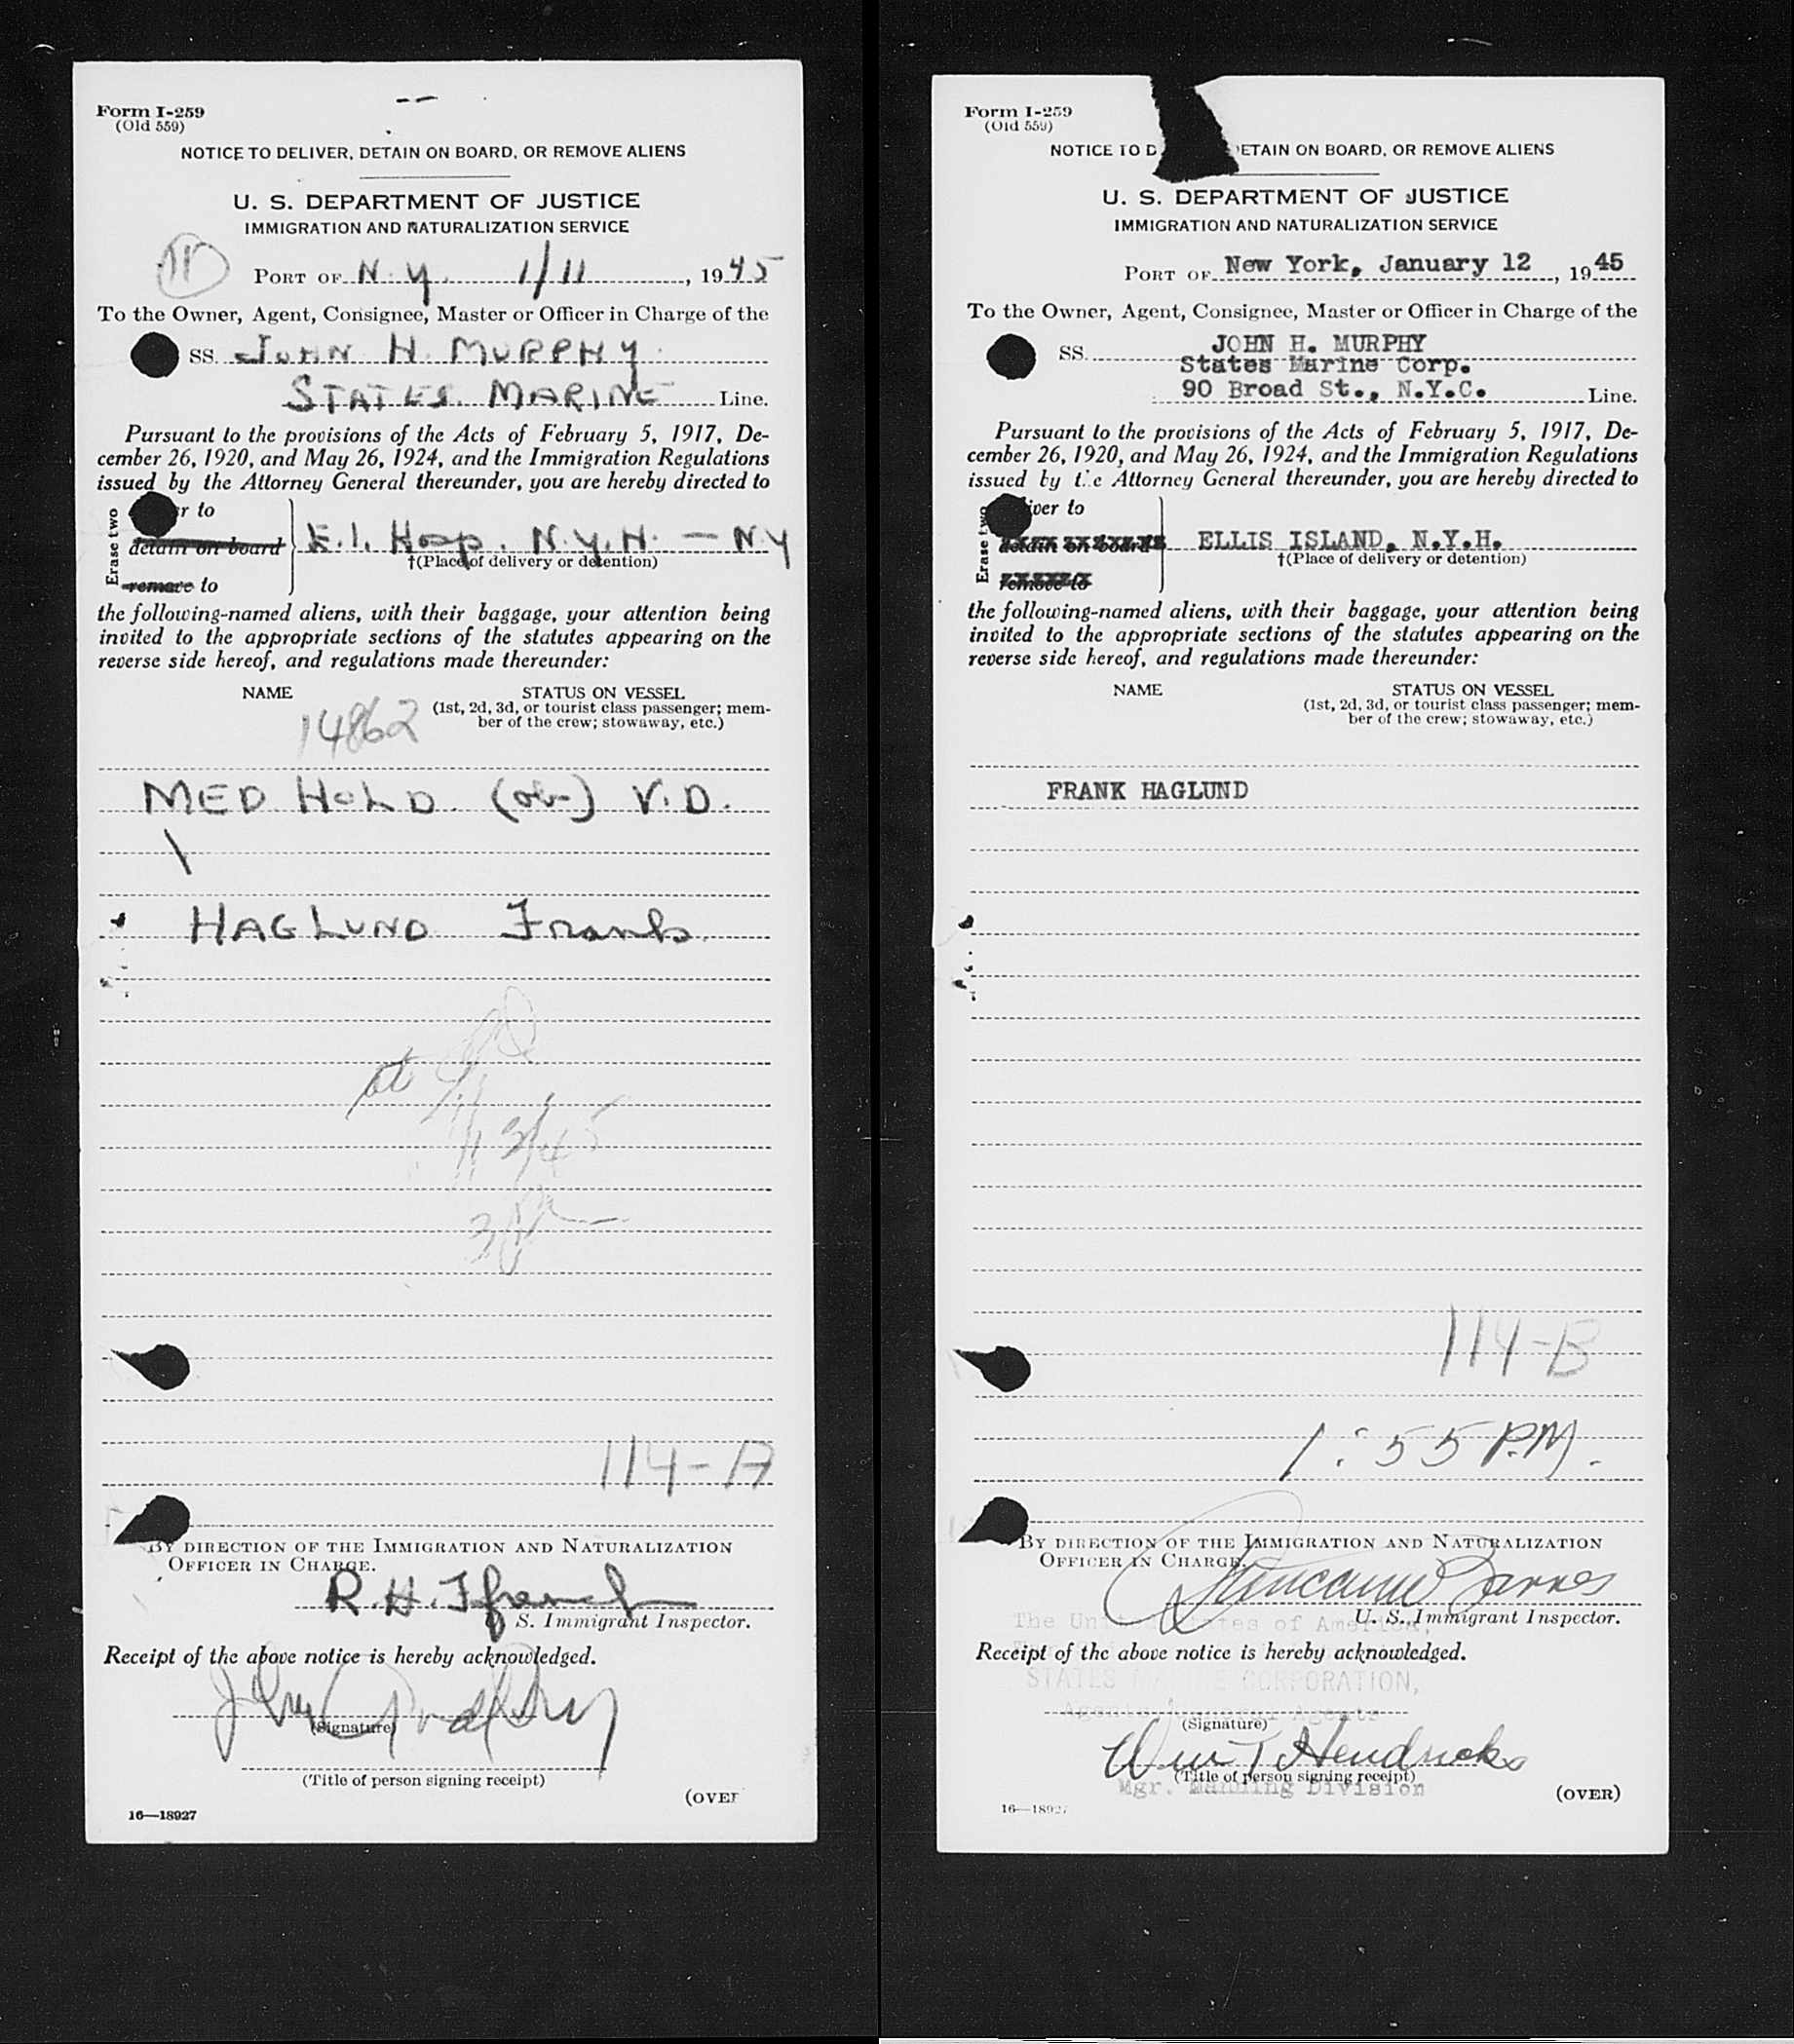 Form I-259
(Old 559)
NOTICE TO DELIVER, DETAIN ON BOARD, OR REMOVE ALIENS
U. S. DEPARTMENT OF JUSTICE
IMMIGRATION AND NATURALIZATION SERVICE
PORT OF N.Y. 1/11, 1945
To the Owner, Agent, Consignee, Master or Officer in Charge of the
SS. JOHN H. MURPHY
STATES MARINE Line.
Pursuant to the provisions of the Acts of February 5, 1917, De-
cember 26, 1920, and May 26, 1924, and the Immigration Regulations
issued by the Attorney General thereunder, you are hereby directed to
Erase two
r to
detain on board
E.I. Hosp. N.Y.H. — N.Y
†(Place of delivery or detention)
remove to
the following-named aliens, with their baggage, your attention being
invited to the appropriate sections of the statutes appearing on the
reverse side hereof, and regulations made thereunder:
NAME
STATUS ON VESSEL
(1st, 2d, 3d, or tourist class passenger; mem-
ber of the crew; stowaway, etc.)
14862
MED HOLD (ob-) V.D.
HAGLUND Frank
at
114-A
BY DIRECTION OF THE IMMIGRATION AND NATURALIZATION
OFFICER IN CHARGE.
R.H.
S. Immigrant Inspector.
Receipt of the above notice is hereby acknowledged.
John
(Signature)
(Title of person signing receipt)
(OVER
16—18927
Form I-259
(Old 559)
NOTICE TO D ETAIN ON BOARD, OR REMOVE ALIENS
U. S. DEPARTMENT OF JUSTICE
IMMIGRATION AND NATURALIZATION SERVICE
PORT OF New York, January 12, 1945
To the Owner, Agent, Consignee, Master or Officer in Charge of the
SS. JOHN H. MURPHY
States Marine Corp.
90 Broad St., N.Y.C. Line.
Pursuant to the provisions of the Acts of February 5, 1917, De-
cember 26, 1920, and May 26, 1924, and the Immigration Regulations
issued by the Attorney General thereunder, you are hereby directed to
Erase two
iver to
detain on board
ELLIS ISLAND, N.Y.H.
†(Place of delivery or detention)
remove to
the following-named aliens, with their baggage, your attention being
invited to the appropriate sections of the statutes appearing on the
reverse side hereof, and regulations made thereunder:
NAME
STATUS ON VESSEL
(1st, 2d, 3d, or tourist class passenger; mem-
ber of the crew; stowaway, etc.)
FRANK HAGLUND
114-B
1:55 P.M.
BY DIRECTION OF THE IMMIGRATION AND NATURALIZATION
OFFICER IN CHARGE.
U. S. Immigrant Inspector.
The United States of America,
Receipt of the above notice is hereby acknowledged.
STATES MARINE CORPORATION,
Agents
(Signature)
Wm T Hendricks
(Title of person signing receipt)
Mgr. Manning Division
(OVER)
16—18927